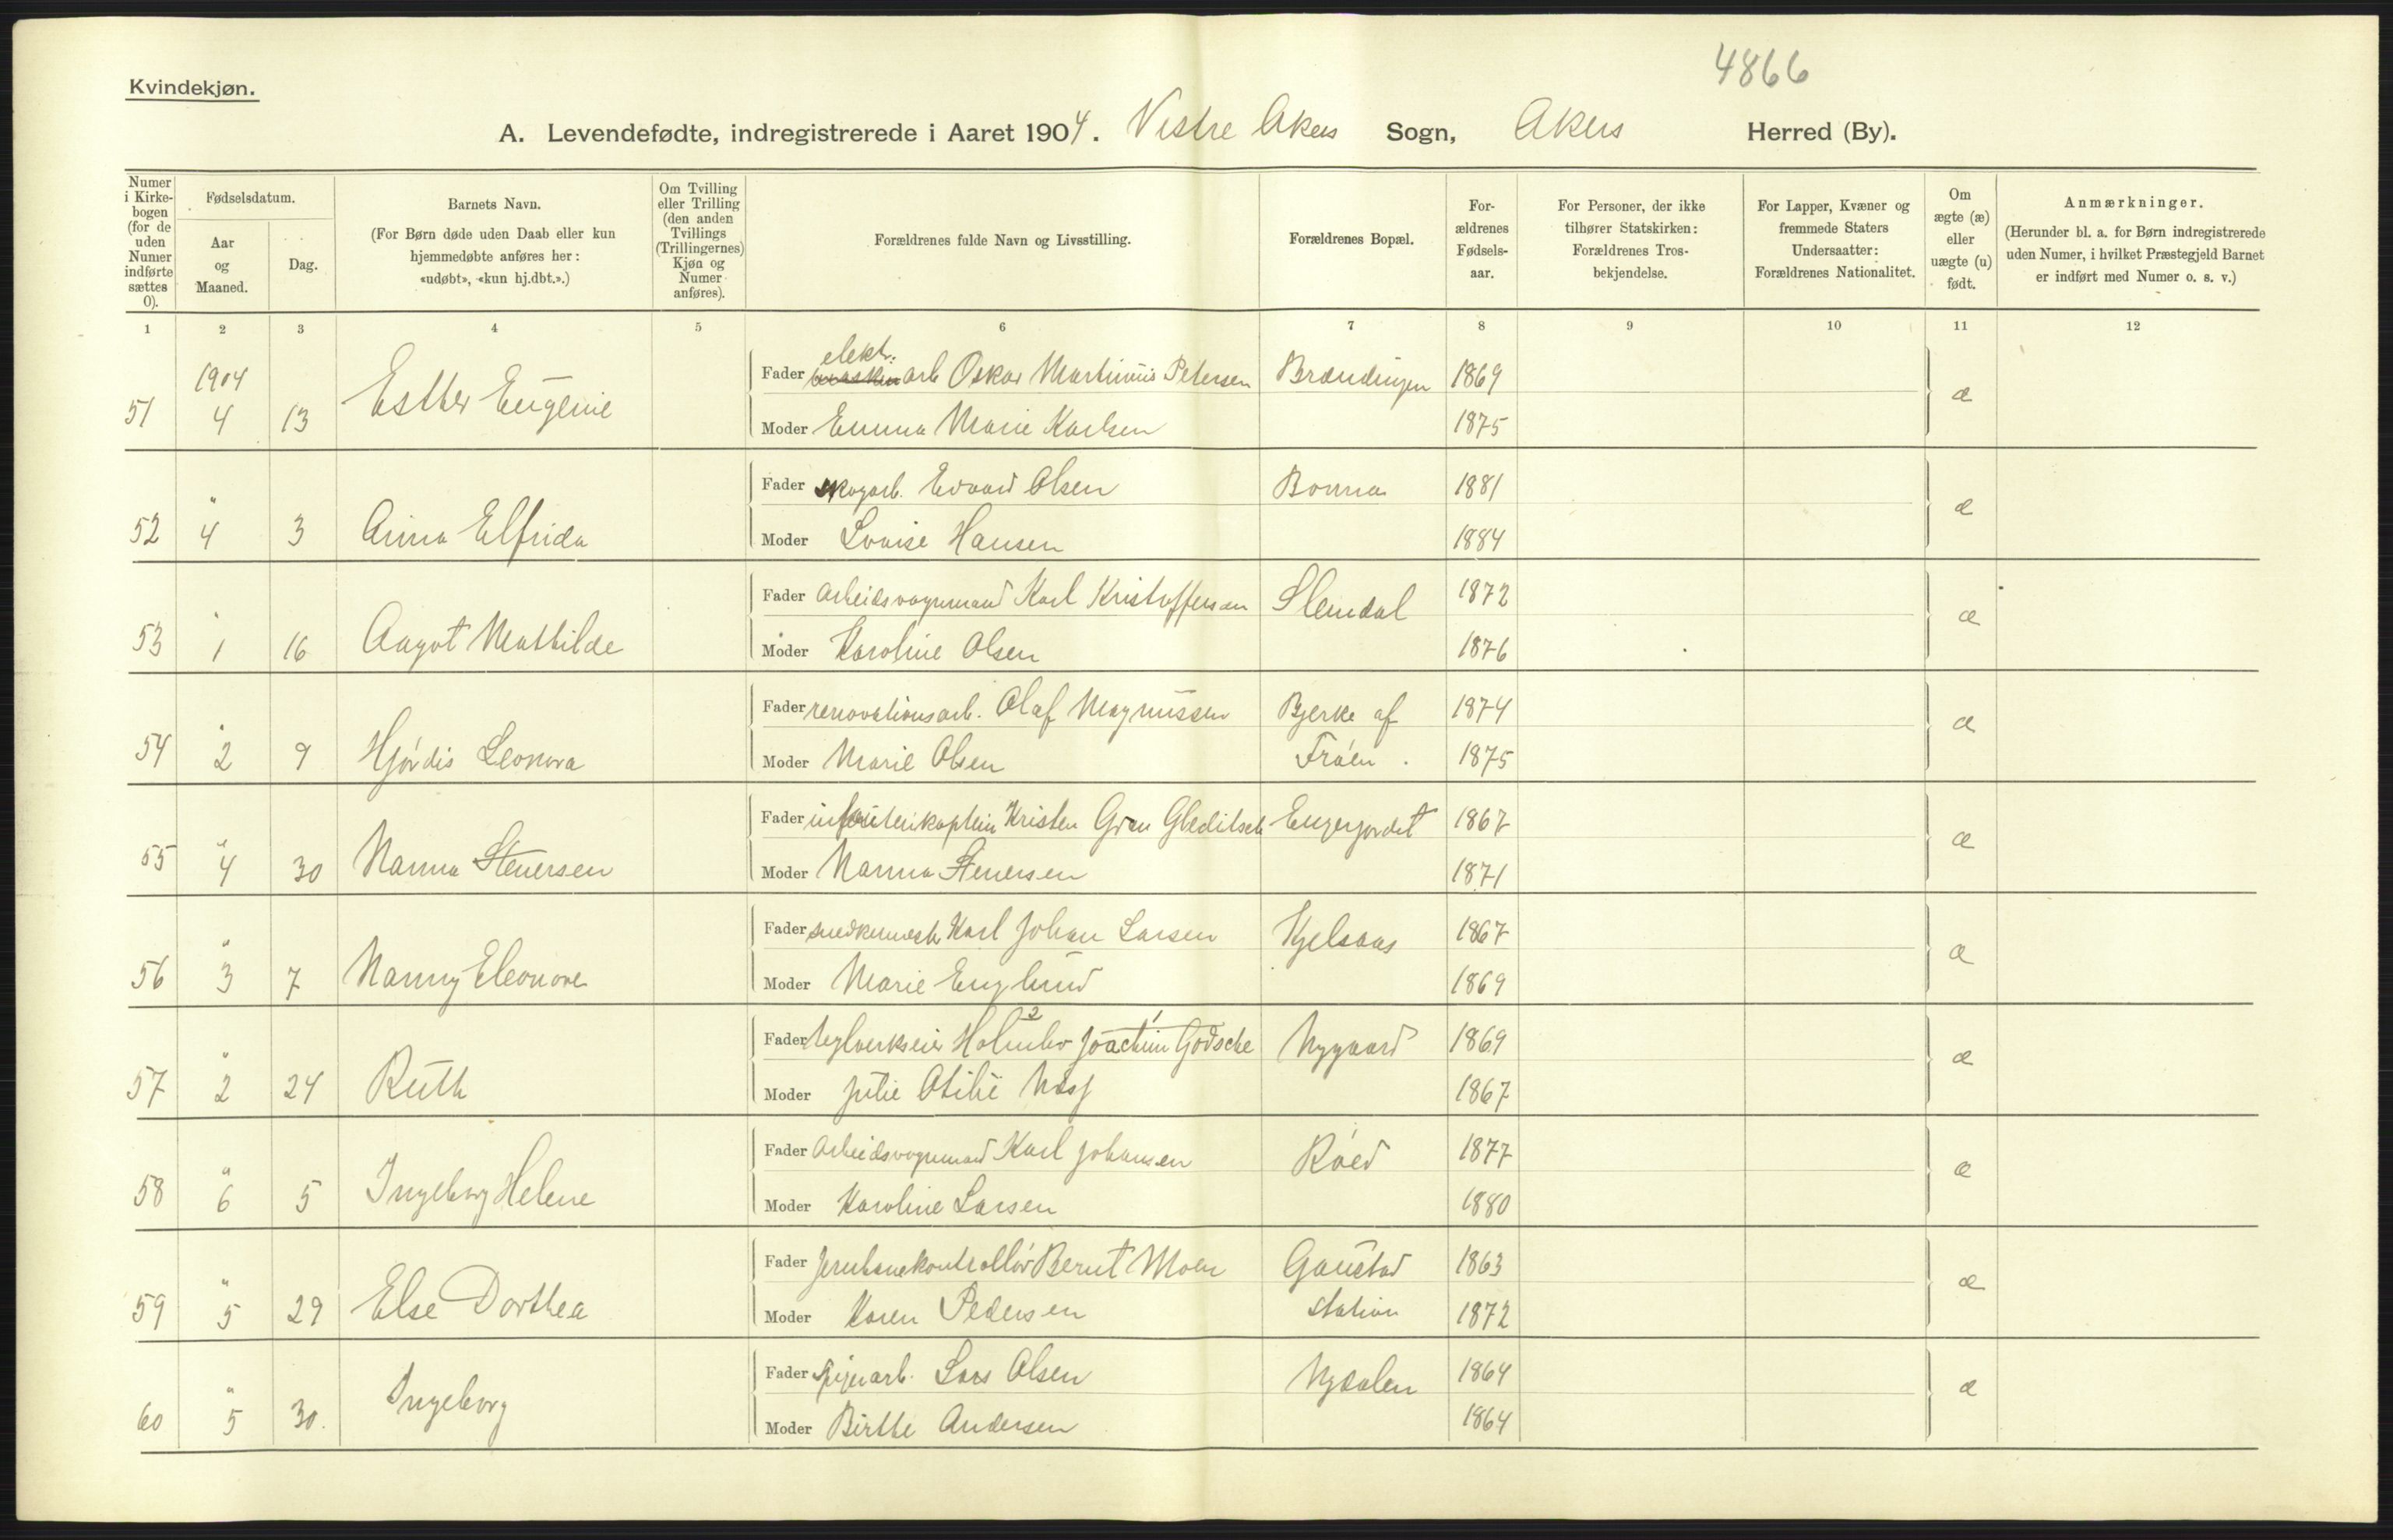 4866
Kvindekjøn.
A. Levendefødte, indregistrerede i Aaret 1904. Vestre Akers Sogn, Akers Herred (By).
Numer i Kirke-bogen (for de uden Numer indførte sættes 0).
Fødselsdatum.
Aar og Maaned.
Dag.
Barnets Navn.
(For Børn døde uden Daab eller kun hjemmedøbte anføres her: «udøbt», «kun hj.dbt.».)
Om Tvilling eller Trilling (den anden Tvillings (Trillingernes) Kjøn og Numer anføres).
Forældrenes fulde Navn og Livsstilling.
Forældrenes Bopæl.
For-ældrenes Fødsels-aar.
For Personer, der ikke tilhører Statskirken: Forældrenes Tros-bekjendelse.
For Lapper, Kvæner og fremmede Staters Undersaatter: Forældrenes Nationalitet.
Om ægte (æ) eller uægte (u) født.
Anmærkninger.
(Herunder bl. a. for Børn indregistrerede uden Numer, i hvilket Præstegjeld Barnet er indført med Numer o. s. v.)
1 2 3 4 5 6 7 8 9 10 11 12
elekt.
1904 Fader arb Oskar Martinius Petersen Brændingen 1869 æ
51 4 13 Esther Eugenie Moder Emma Marie Karlsen 1875
" Fader skogarb. Edvard Olsen Bonna 1881 æ
52 4 3 Anna Elfrida Moder Lovise Hansen 1884
" Fader Arbeidsvognmand Karl Kristoffersen Slemdal 1872 æ
53 1 16 Aagot Mathilde Moder Karoline Olsen 1876
" Fader renovationsarb. Olaf Magnussen Bjerke af 1874 æ
54 2 9 Hjórdis Leonora Moder Marie Olsen Fróen. 1875
" Fader infanterikaptein Kristen Gran Gleditsch Engerjordet 1867 æ
55 4 30 Nanna Stenersen Moder Nanna Stenersen 1871
" Fader snedkermester Karl Johan Larsen Kjelsaas 1867 æ
56 3 7 Nanny Eleonore Moder Marie Englund 1869
2 1
" Fader teglverkseier Joachim Godsche Nygaard 1869 æ
57 2 24 Ruth Moder Julie Otilie 1867
" Fader Arbeidsvognmand Karl Johansen Róed 1877 æ
58 6 5 Ingeborg Helene Moder Karoline Larsen 1880
" Fader Jernbanekontrollór Bernt Moen Gaustad 1863 æ
59 5 29 Else Dorthea Moder Karen Pedersen station 1872
" Fader spigerarb. Lars Olsen Nydalen 1864 æ
60 5 30. Ingeborg Moder Birthe Andersen 1864